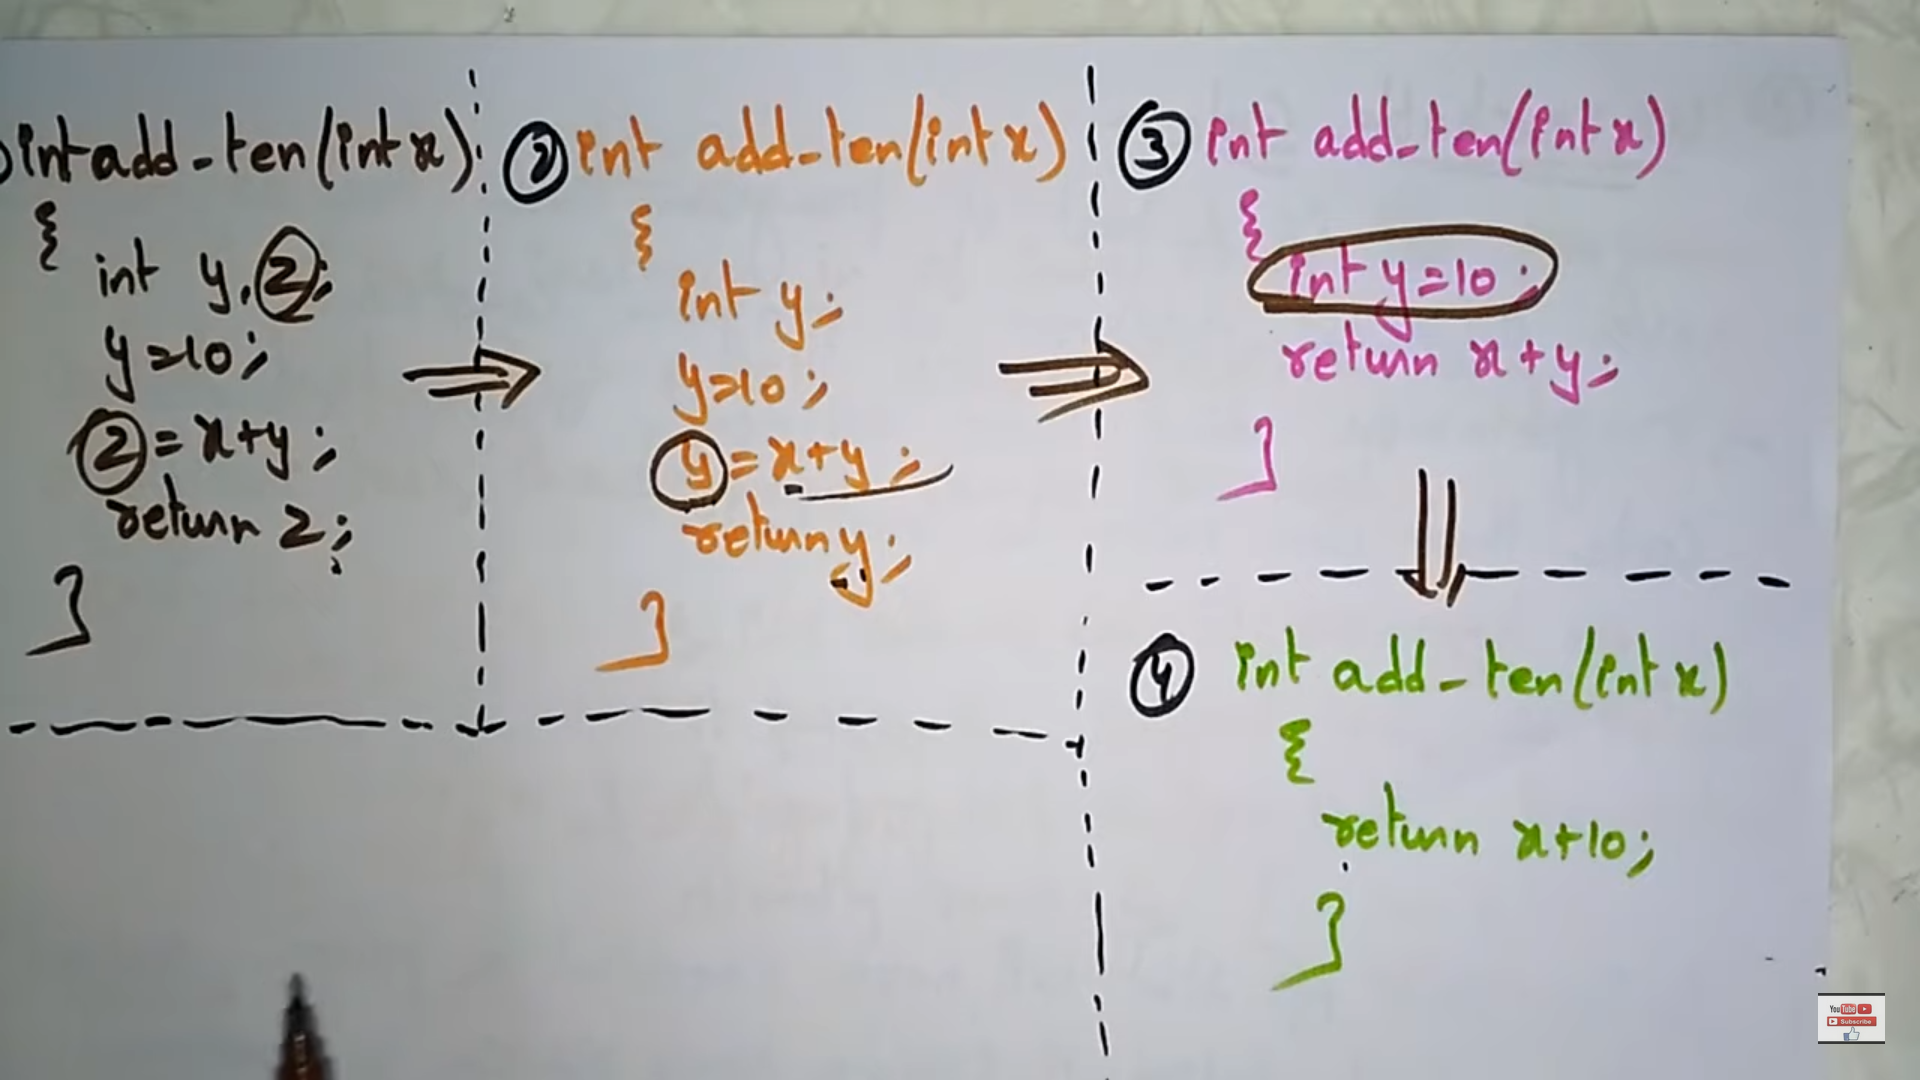 int add-ten(int x)
{
int y, z;
y=10;
z = x+y;
return z;
}
② int add-ten(int x)
{
int y;
y=10;
y = x+y;
return y;
}
③ int add-ten(int x)
{
int y=10;
return x+y;
}
④ int add-ten(int x)
{
return x+10;
}
YouTube
Subscribe